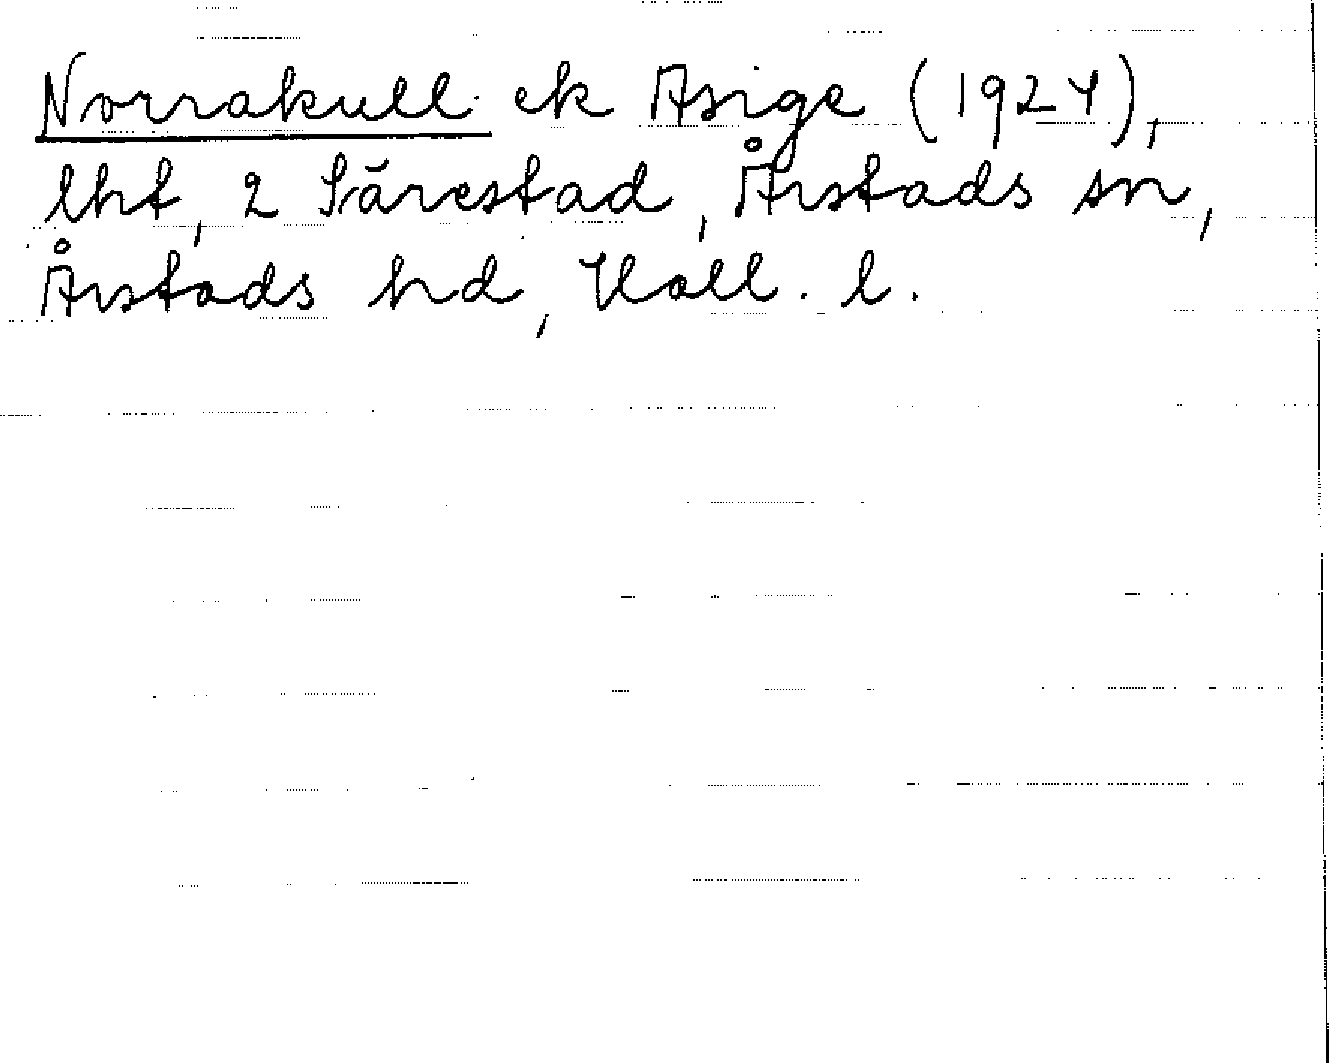 Norrakull ek Asige (1924),
lht, 2 Särestad, Årstads sn,
Årstads hd, Hall. l.